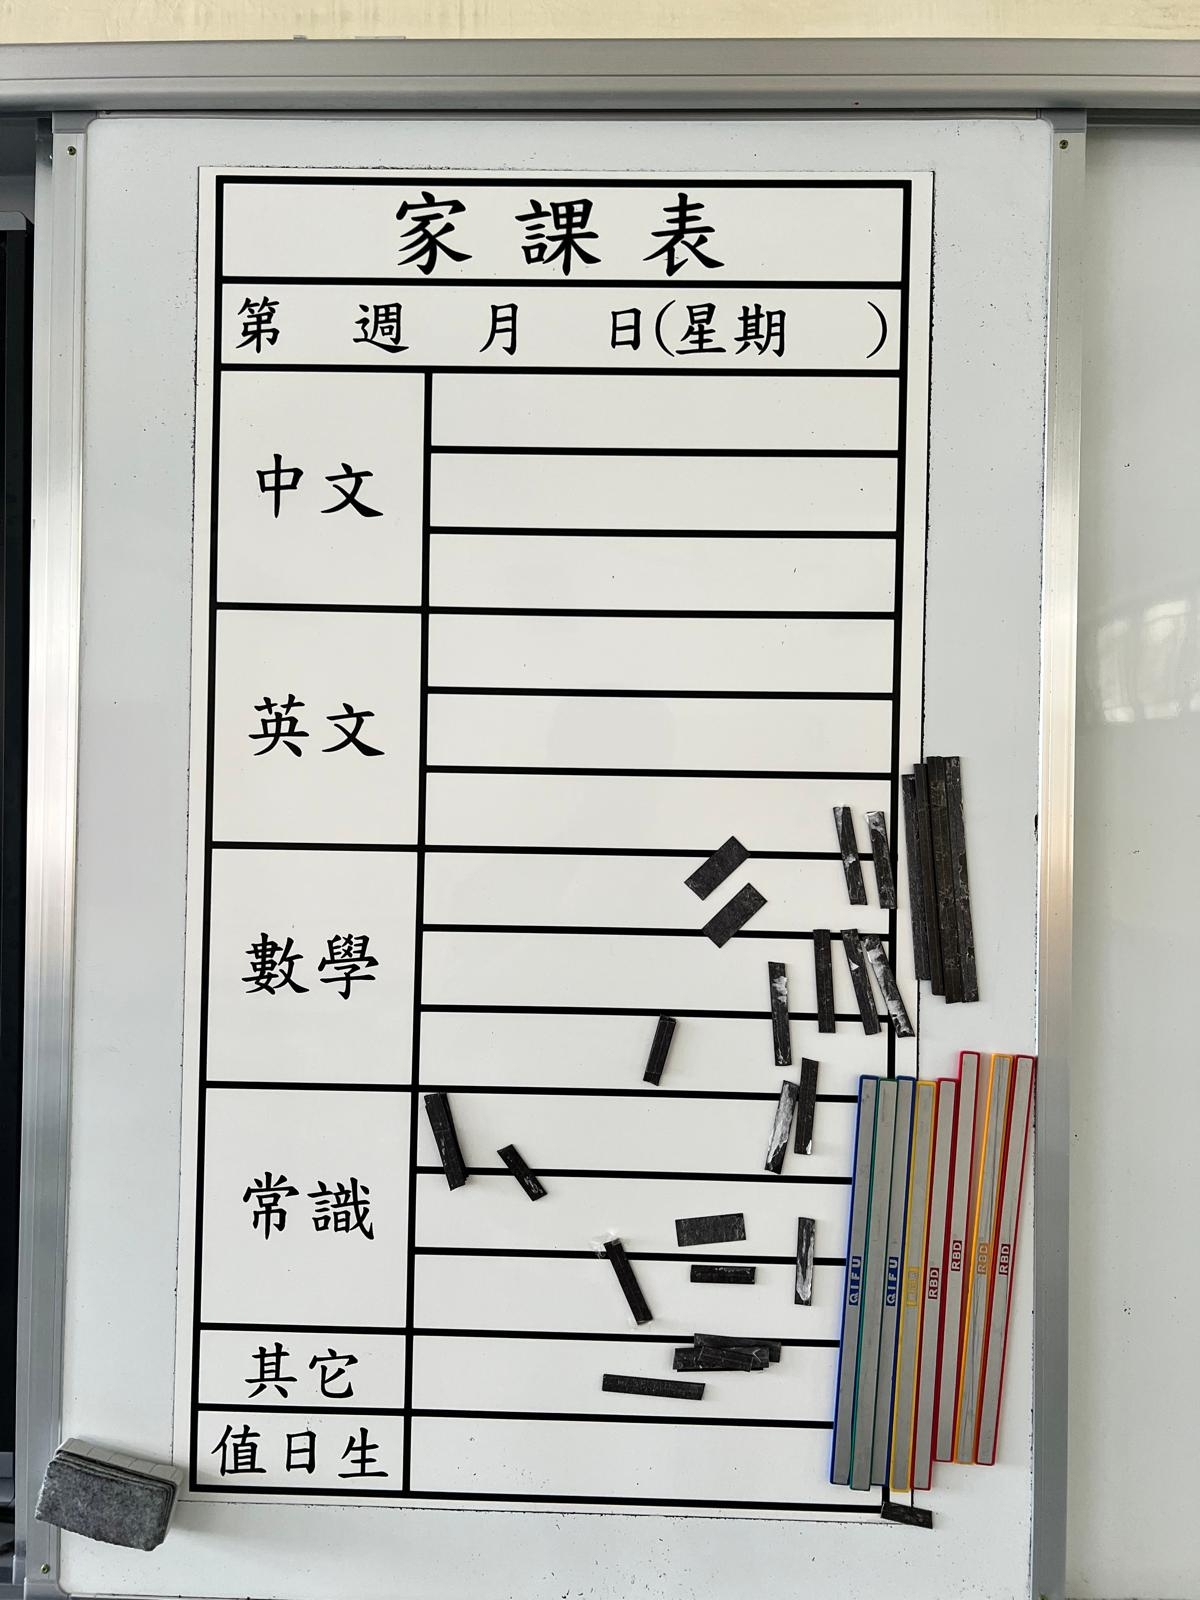 家課表
第 週 月 日(星期 )
中文
英文
數學
常識
其它
值日生
QIFU
QIFU
RBD
RBD
RBD
RBD